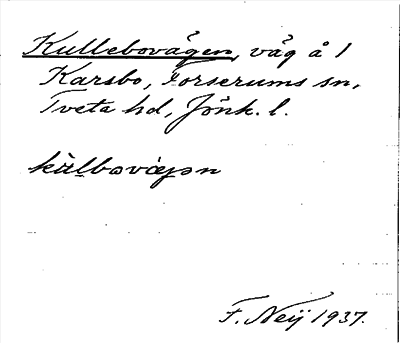 Kullebovägen, väg å 1
Karsbo, Forserums sn,
Tveta hd, Jönk. l.
F. Neij 1937.